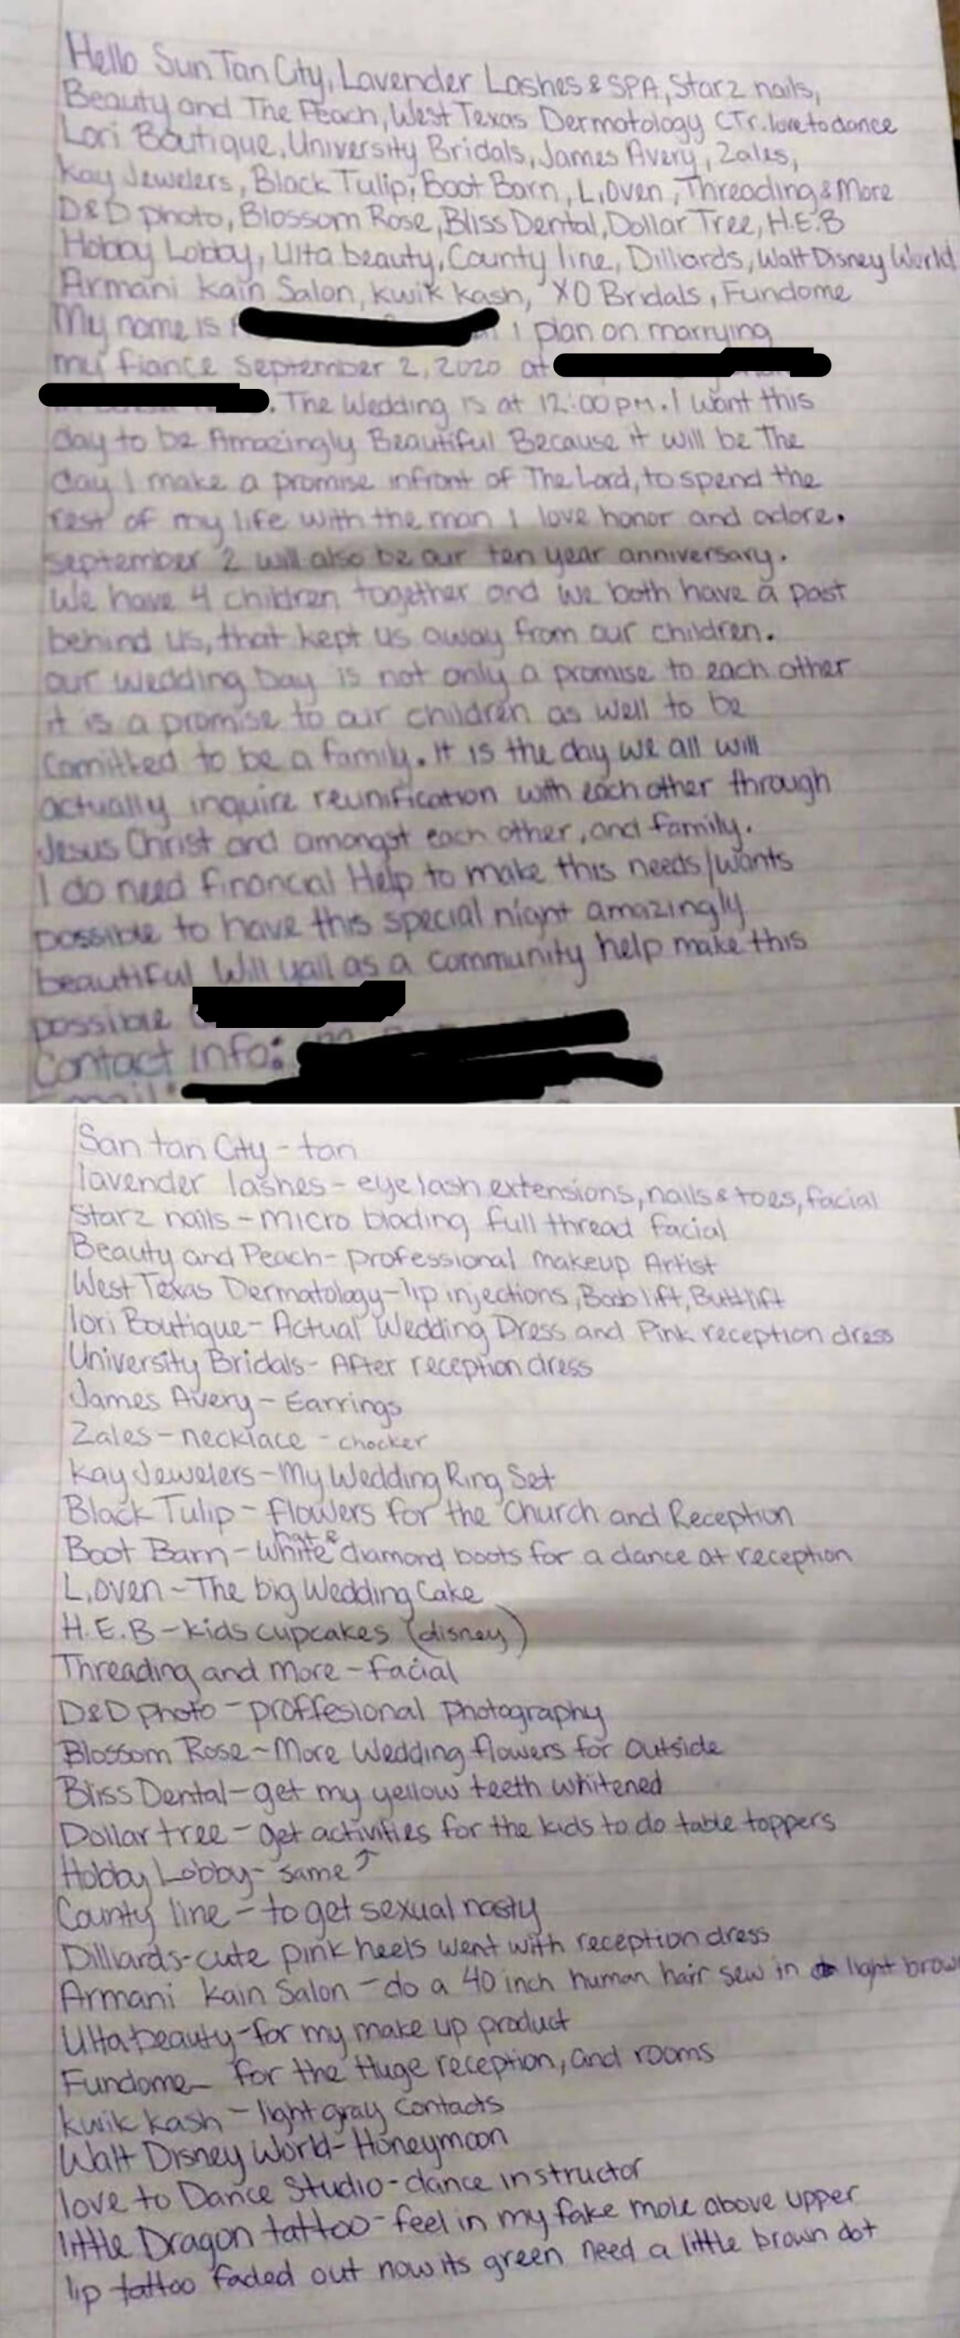 Hello Sun Tan City, Lavender Lashes & SPA, Starz nails,
Beauty and The Peach, West Texas Dermotology CTr. love to dance
Lori Boutique, University Bridals, James Avery, Zales,
Kay Jewelers, Black Tulip, Boot Barn, L.Oven, Threading & More
D&D photo, Blossom Rose, Bliss Dental, Dollar Tree, H.E.B
Hobby Lobby, Ulta beauty, County line, Dilliards, Walt Disney World
Armani Kain Salon, kwik kash, XO Bridals, Fundome
My name is i plan on marrying
my fiance September 2, 2020 at
. The Wedding is at 12:00pm. I want this
day to be Amazingly Beautiful Because it will be The
day I make a promise infront of The Lord, to spend the
rest of my life with the man I love honor and adore.
September 2 will also be our ten year anniversary.
We have 4 children together and we both have a past
behind us, that kept us away from our children.
our Wedding Day is not only a promise to each other
it is a promise to our children as well to be
Comitted to be a family. It is the day we all will
actually inquire reunification with each other through
Jesus Christ and amongst each other, and family.
I do need financial Help to make this needs/wants
possible to have this special night amazingly
beautiful Will yall as a community help make this
possible
Contact info:
San tan City - tan
lavender lashes - eye lash extensions, nails & toes, facial
Starz nails - micro blading full thread facial
Beauty and Peach - professional makeup Artist
West Texas Dermatology - lip injections, Boob lift, Butt lift
lori Boutique - Actual Wedding Dress and Pink reception dress
University Bridals - After reception dress
James Avery - Earrings
Zales - necklace - chocker
Kay Jewelers - My Wedding Ring Set
Black Tulip - flowers for the Church and Reception
hat &
Boot Barn - white diamond boots for a dance at reception
L.oven - The big Wedding Cake
H.E.B - kids cupcakes (disney)
Threading and more - facial
D&D photo - proffesional photography
Blossom Rose - More Wedding flowers for outside
Bliss Dental - get my yellow teeth whitened
Dollar tree - get activities for the kids to do table toppers
Hobby Lobby - same ⤴
County line - to get sexual nasty
Dilliards - cute pink heels went with reception dress
Armani Kain Salon - do a 40 inch human hair sew in light brow
Ulta beauty - for my make up product
Fundome - for the Huge reception, and rooms
kwik kash - light gray contacts
Walt Disney World - Honeymoon
love to Dance Studio - dance instructor
little Dragon tattoo - feel in my fake mole above upper
lip tattoo faded out now its green need a little brown dot